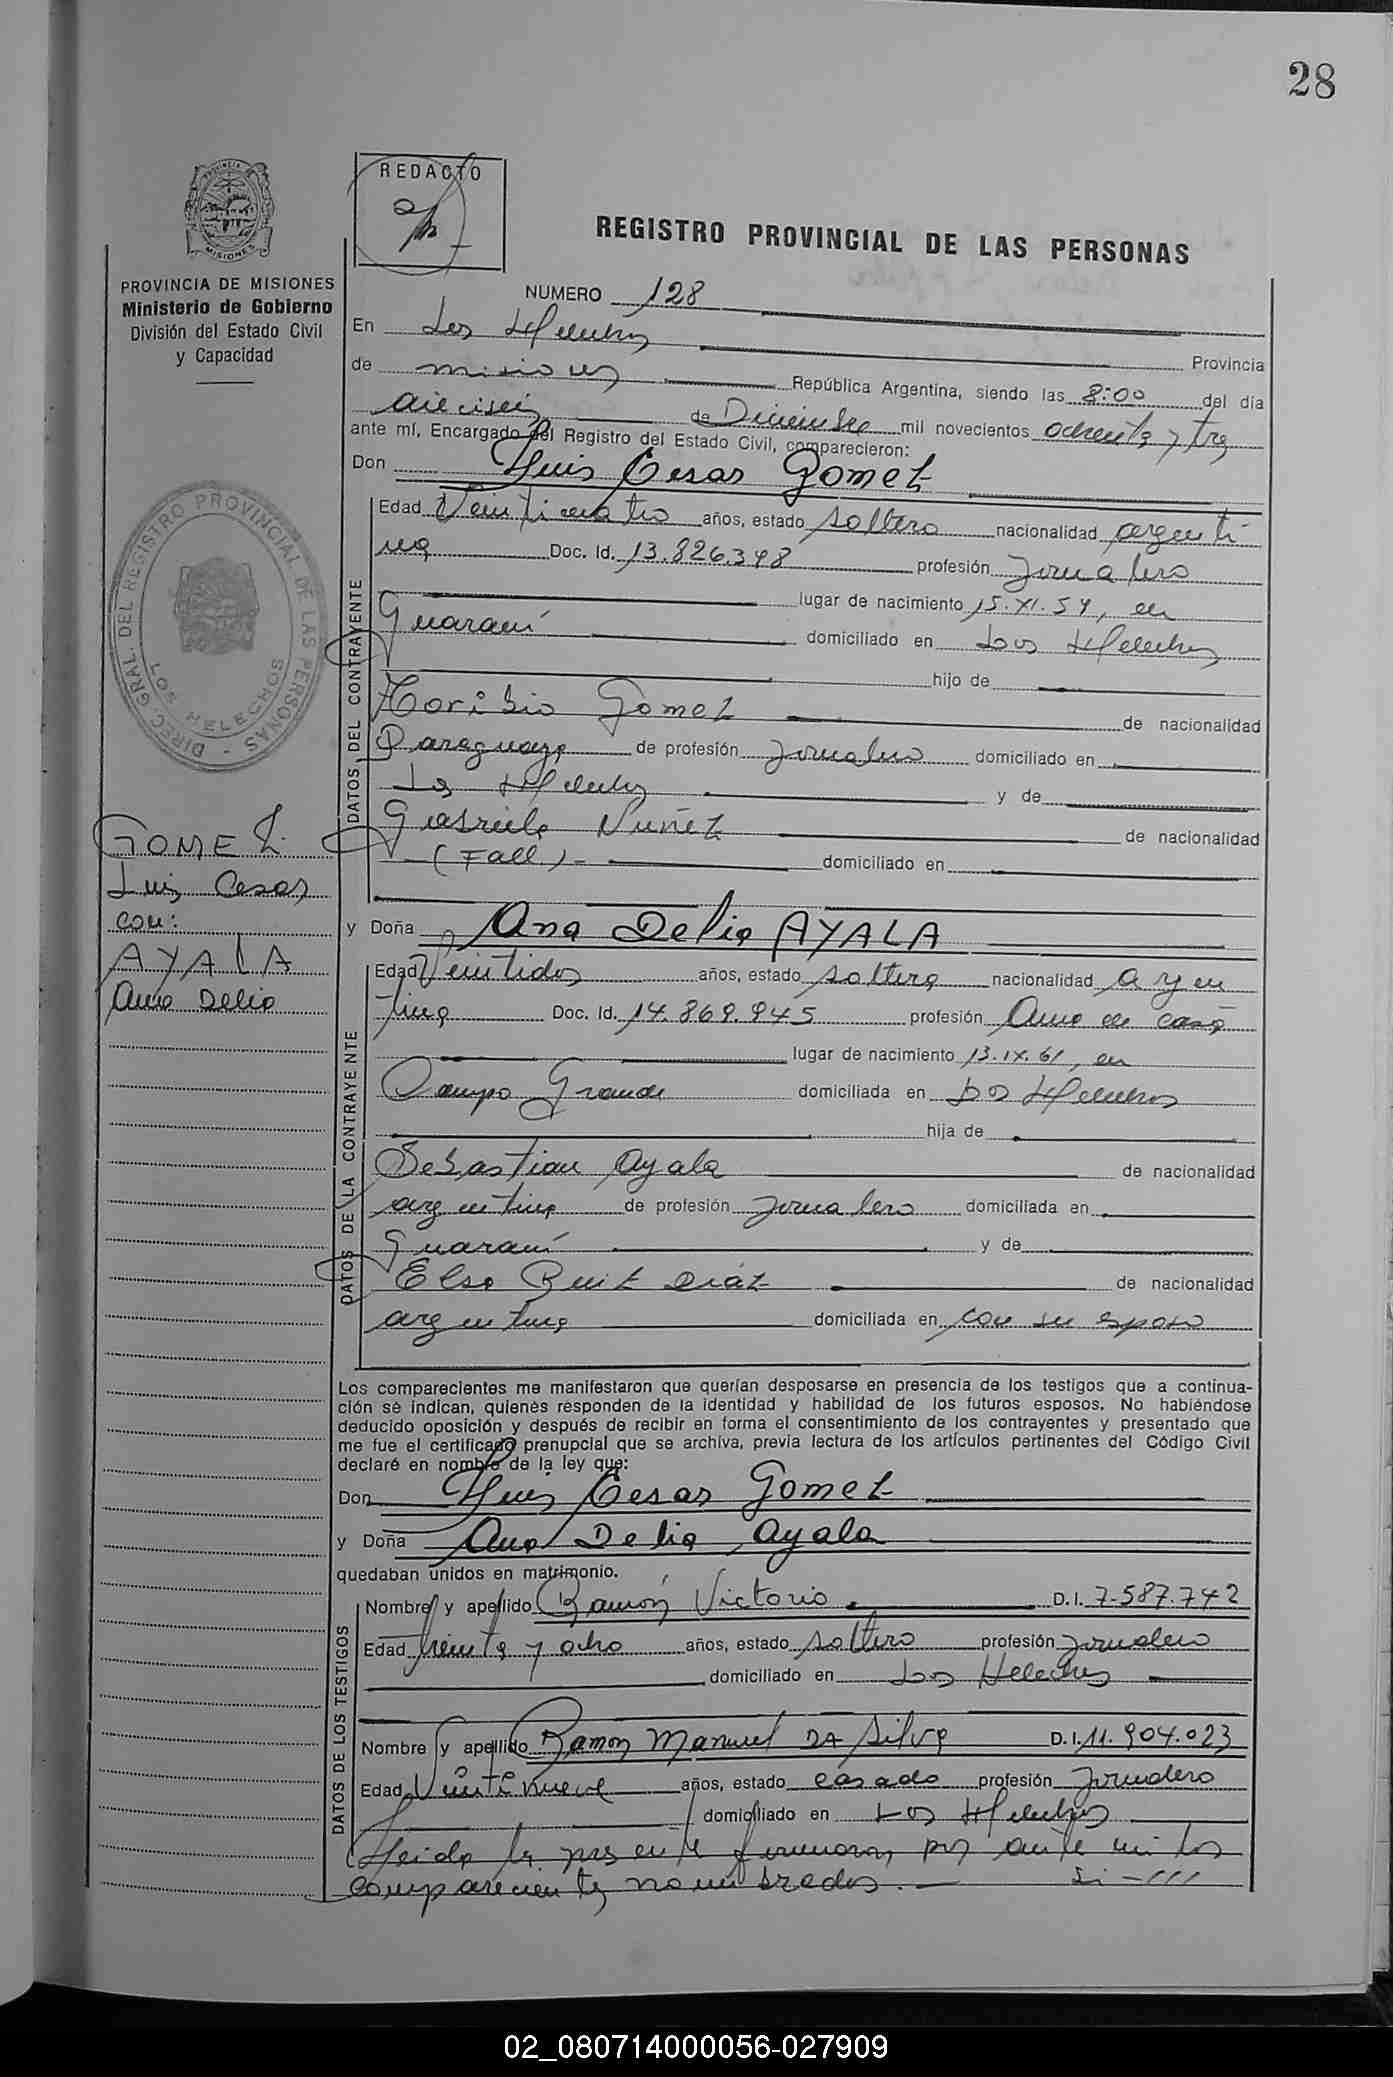 28
REDACTO
REGISTRO PROVINCIAL DE LAS PERSONAS
PROVINCIA DE MISIONES
Ministerio de Gobierno
División del Estado Civil
y Capacidad
DIREC. GRAL. DEL REGISTRO PROVINCIAL DE LAS PERSONAS - LOS HELECHOS
GOMEZ
Luis Cesar
con:
AYALA
Ana Delia
NUMERO 128
En Los Helechos Provincia
de misiones República Argentina, siendo las 8:00 del día
dieciséis de Diciembre mil novecientos ochenta y tres
ante mí, Encargado del Registro del Estado Civil, comparecieron:
Don Luis Cesar Gomez
DATOS DEL CONTRAYENTE
Edad Veinticuatro años, estado soltero nacionalidad argenti
na Doc. Id. 13.826.398 profesión Jornalero
lugar de nacimiento 15.XI.59, en
Guaraní domiciliado en Los Helechos
hijo de
Toribio Gomez de nacionalidad
Paraguaya de profesión Jornalero domiciliado en
Los Helechos y de
Gabriela Nuñez de nacionalidad
(Fall) - domiciliado en
y Doña Ana Delia AYALA
DATOS DE LA CONTRAYENTE
Edad Veintidos años, estado soltera nacionalidad argen
tina Doc. Id. 14.869.945 profesión Ama de casa
lugar de nacimiento 13.IX.61, en
Campo Grande domiciliada en Los Helechos
hija de
Sebastian Ayala de nacionalidad
argentina de profesión Jornalero domiciliada en
Guaraní y de
Elsa Ruiz Diaz de nacionalidad
argentina domiciliada en con su esposo
Los comparecientes me manifestaron que querían desposarse en presencia de los testigos que a continua-
ción se indican, quienes responden de la identidad y habilidad de los futuros esposos. No habiéndose
deducido oposición y después de recibir en forma el consentimiento de los contrayentes y presentado que
me fue el certificado prenupcial que se archiva, previa lectura de los artículos pertinentes del Código Civil
declaré en nombre de la ley que:
Don Luis Cesar Gomez
y Doña Ana Delia Ayala
quedaban unidos en matrimonio.
DATOS DE LOS TESTIGOS
Nombre y apellido Ramón Victorio D.I. 7.587.742
Edad treinta y ocho años, estado soltero profesión Jornalero
domiciliado en Los Helechos
Nombre y apellido Ramon Manuel DA Silva D.I. 11.904.023
Edad Veintinueve años, estado casado profesión Jornalero
domiciliado en Los Helechos
Leida la presente firmaron por ante mi los
comparecientes nombrados.-
02_080714000056-027909